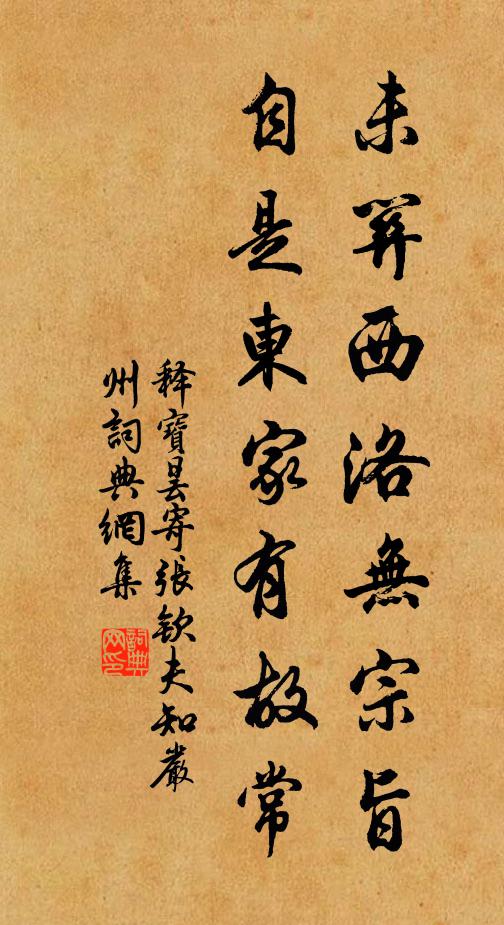 未西洛無宗旨
自是東家有故常
釋寶曇寄張欽夫知嚴
州詞典網集
詞典
网印